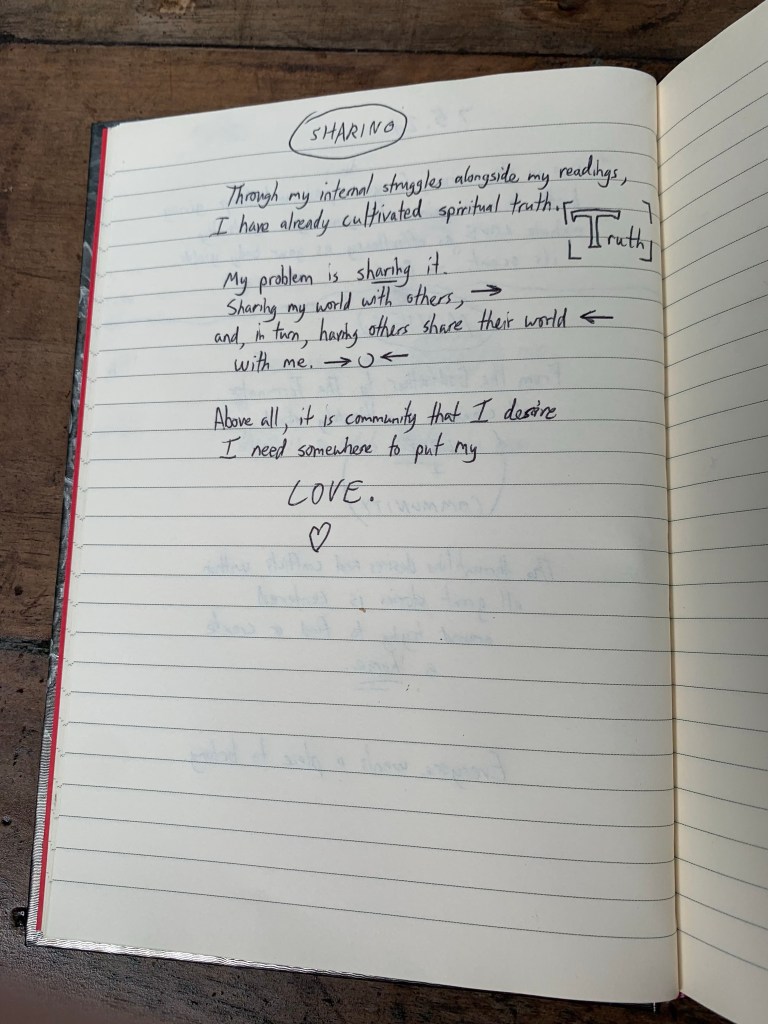 SHARING
Through my internal struggles alongside my readings,
I have already cultivated spiritual truth. [Truth]
My problem is sharing it.
Sharing my world with others, →
and, in turn, having others share their world ←
with me. → ○ ←
Above all, it is community that I desire
I need somewhere to put my
LOVE.
♡